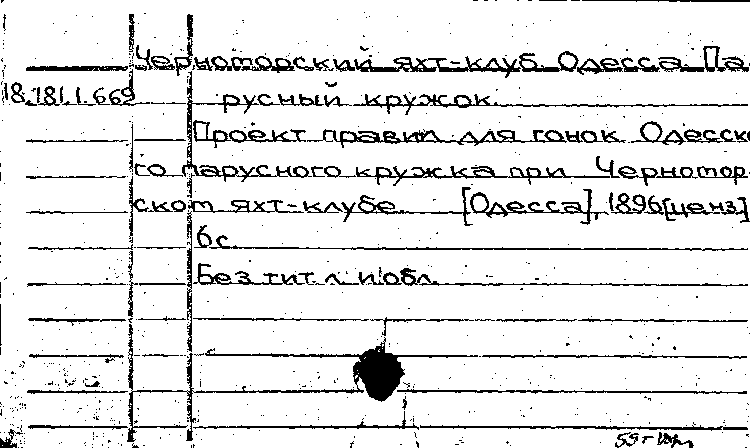 Черноморский яхт-клуб. Одесса. Па-
18.181.1.669 русный кружок.
Проект правил для гонок Одесско
го парусного кружка при Черномор-
ском яхт-клубе. [Одесса], 1896[ценз]
6 с.
Без тит. л. и обл.